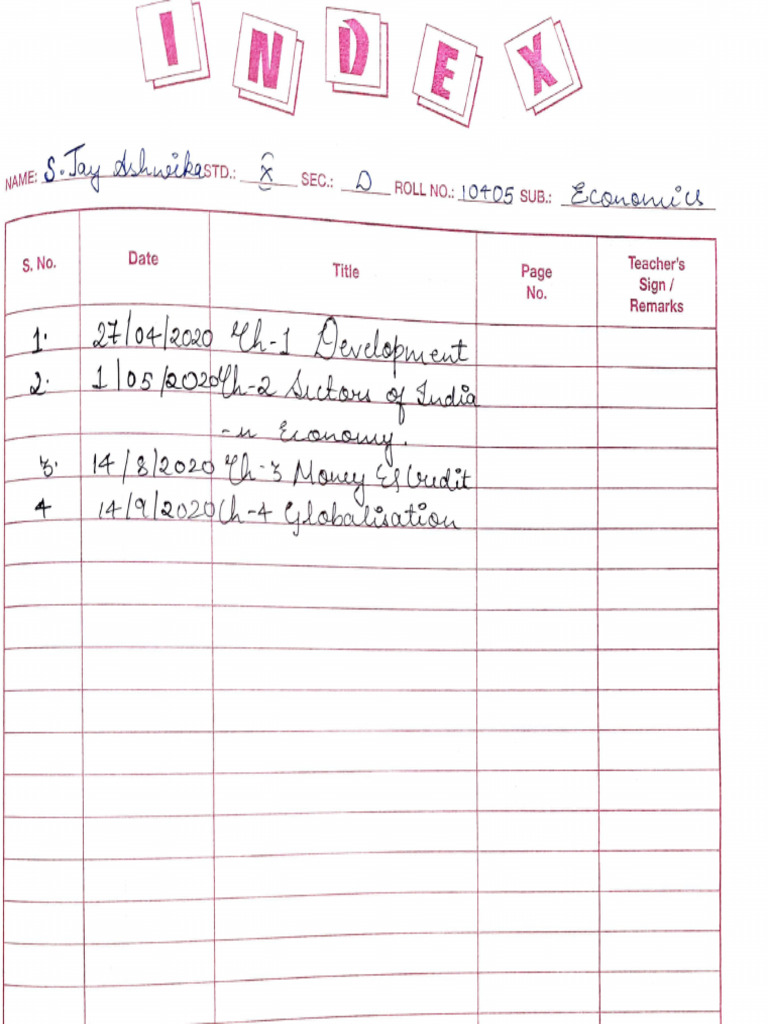 INDEX
NAME: S. Jay Ashwika STD.: X SEC.: D ROLL NO.: 10405 SUB.: Economics
S. No. Date Title Page No. Teacher's Sign / Remarks
1. 27/04/2020 Ch-1 Development
2. 1/05/2020 Ch-2 Sectors of India
-n Economy.
3. 14/8/2020 Ch-3 Money & Credit
4 14/9/2020 Ch-4 Globalisation